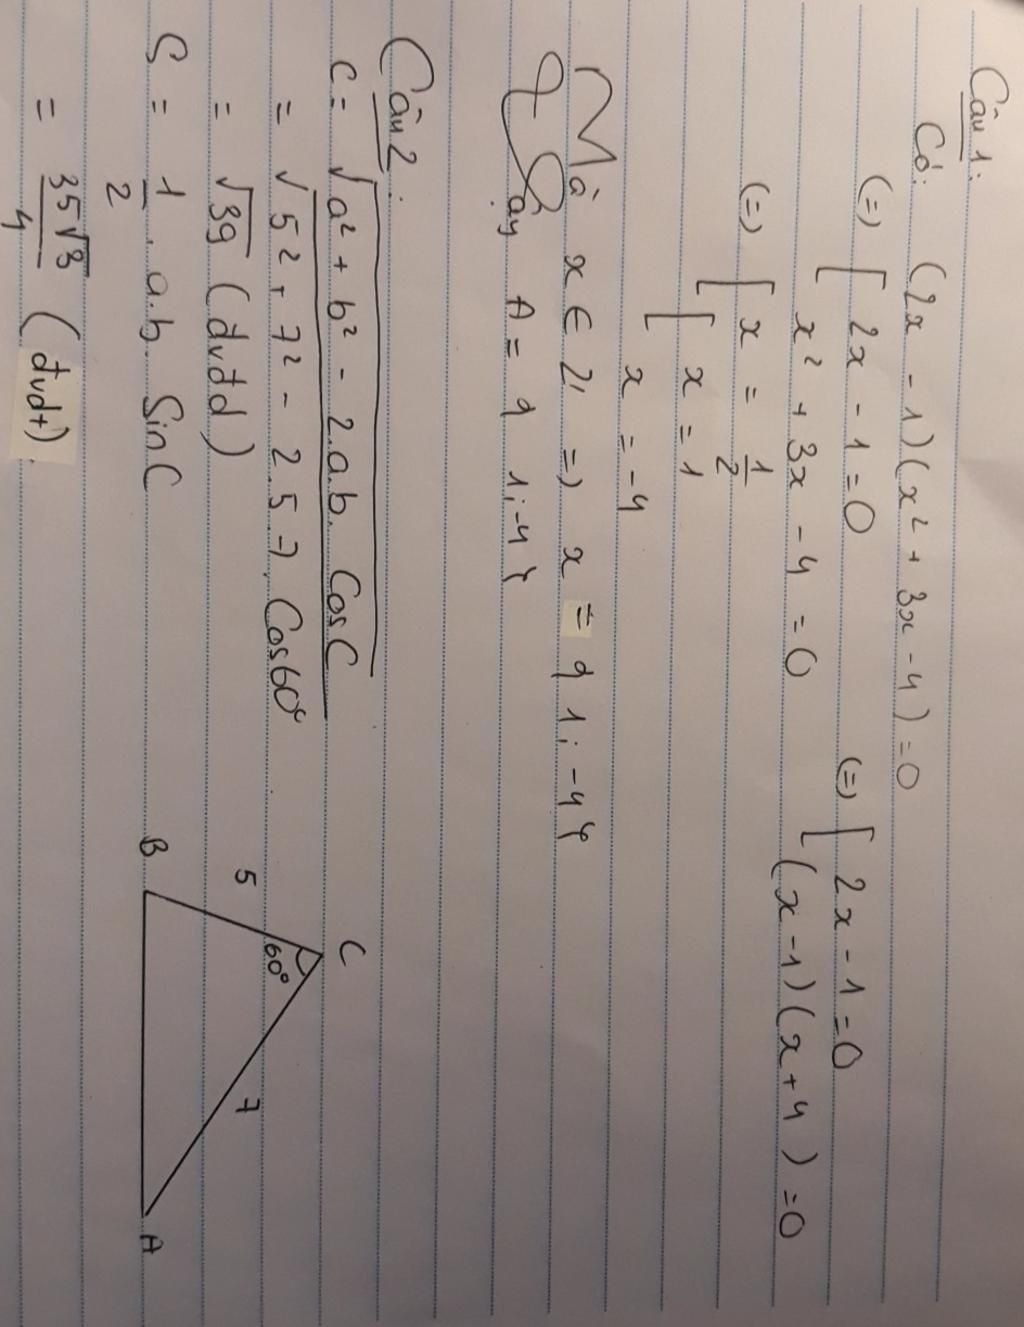 Câu 1:
Có: (2x - 1)(x² + 3x - 4) = 0
(=) [ 2x - 1 = 0 (=) [ 2x - 1 = 0
x² + 3x - 4 = 0 (x - 1)(x + 4) = 0
(=) [ x = 1/2
[ x = 1
x = -4
Mà x ∈ Z => x = { 1; -4 }
Vậy A = { 1; -4 }
Câu 2:
c = √a² + b² - 2.a.b. Cos C
= √5² + 7² - 2.5.7. Cos60°
= √39 (đvđd)
S = 1/2 . a.b. Sin C
= 35√3/4 (đvdt).
C
60°
5
7
B
A